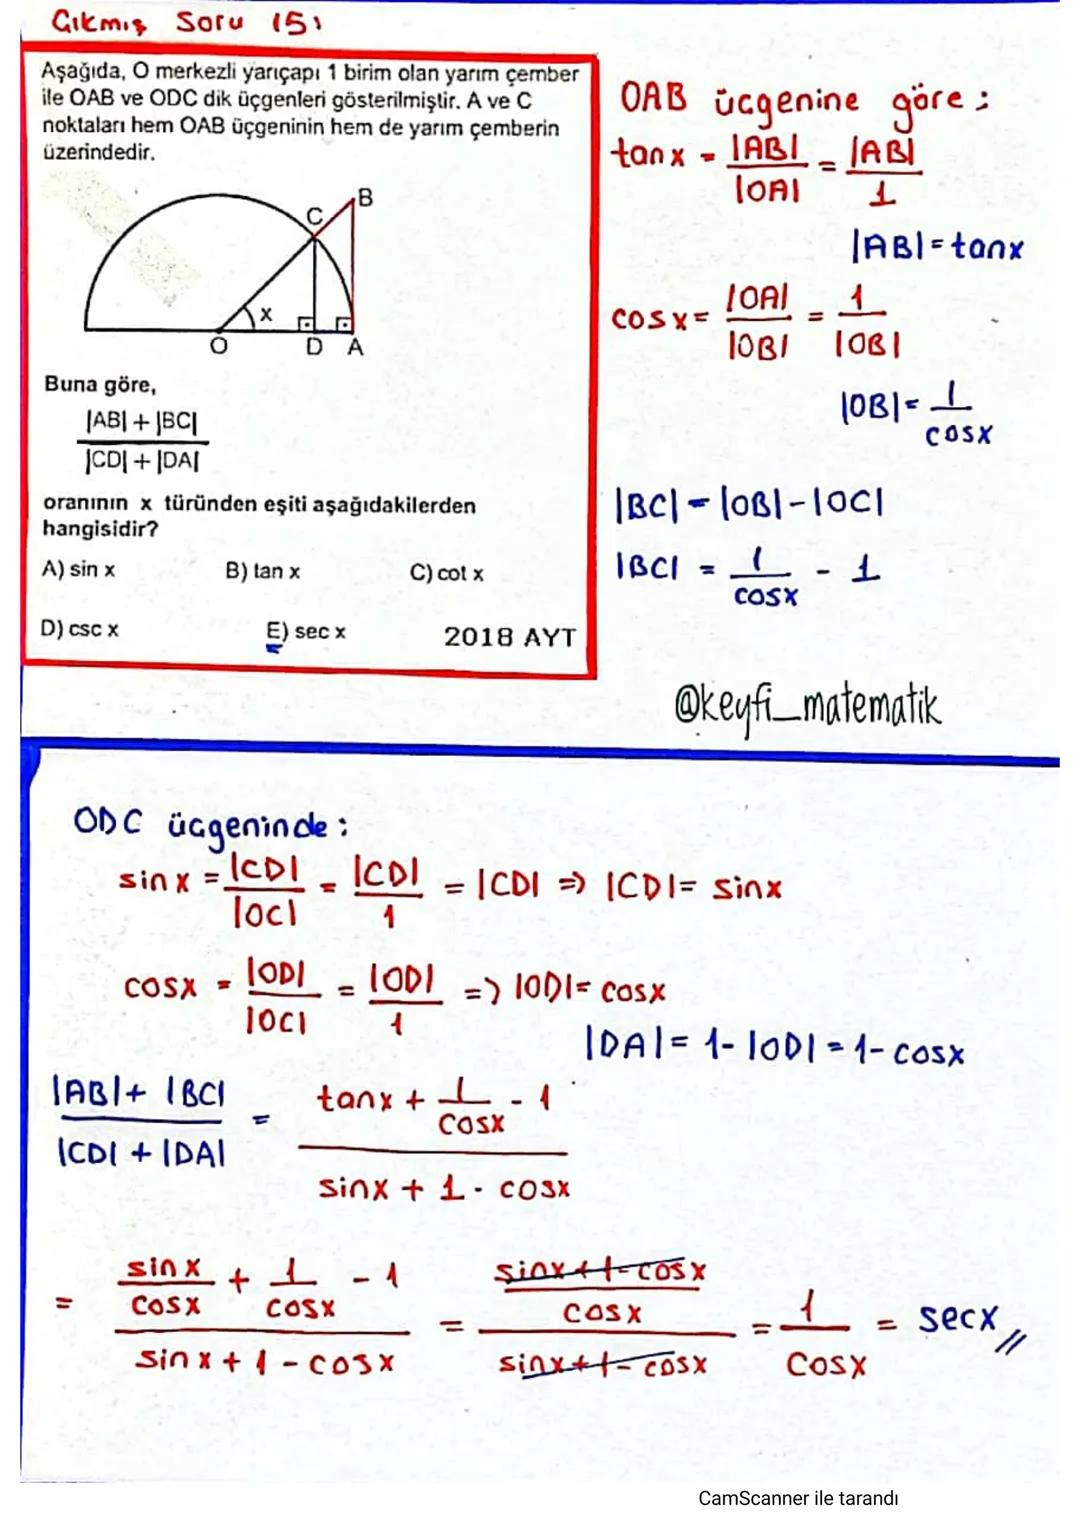 Çıkmış Soru 15:
Aşağıda, O merkezli yarıçapı 1 birim olan yarım çember
ile OAB ve ODC dik üçgenleri gösterilmiştir. A ve C
noktaları hem OAB üçgeninin hem de yarım çemberin
üzerindedir.
B
C
x
O D A
Buna göre,
|AB| + |BC|
|CD| + |DA|
oranının x türünden eşiti aşağıdakilerden
hangisidir?
A) sin x B) tan x C) cot x
D) csc x E) sec x 2018 AYT
OAB üçgenine göre:
tanx = |AB| / |OA| = |AB| / 1
|AB| = tanx
cosx = |OA| / |OB| = 1 / |OB|
|OB| = 1 / cosx
|BC| = |OB| - |OC|
|BC| = 1 / cosx - 1
@keyfi_matematik
ODC üçgeninde:
sinx = |CD| / |OC| = |CD| / 1 = |CD| => |CD| = sinx
cosx = |OD| / |OC| = |OD| / 1 => |OD| = cosx
|DA| = 1 - |OD| = 1 - cosx
|AB| + |BC| / |CD| + |DA| = tanx + 1 / cosx - 1 / sinx + 1 - cosx
= sinx / cosx + 1 / cosx - 1 / sinx + 1 - cosx = sinx + 1 - cosx / cosx / sinx + 1 - cosx = 1 / cosx = secx //
CamScanner ile tarandı